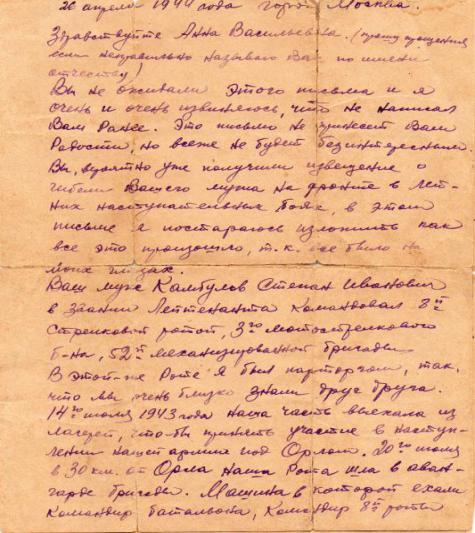 20 апреля 1944 года город Москва.
Здравствуйте Анна Васильевна. (прошу прощения
если неправильно называю Вас по имени
отчеству)
Вы не ожидали этого письма и я
очень и очень извиняюсь, что не написал
Вам Ранее. Это письмо не принесет Вам
Радости, но всеже не будет безинтересным.
Вы, вероятно уже получили извещение о
гибели Вашего мужа на фронте в лет-
них наступательных боях, в этом
письме я постараюсь изложить как
все это произошло, т.к. все было на
моих глазах.
Ваш муж Камбулов Степан Иванович
в звании Лейтенанта Командовал 8ой
Стрелковой ротой, 3го мотострелкового
б-на, 52й механизированной бригады
В этой-же Роте я был парторгом, так.
что мы очень близко знали друг друга.
14го июля 1943 года наша часть выехала из
лагерей, что-бы принять участие в наступ-
лении нашей армии под Орлом. 20го июля
в 30 км. от Орла наша Рота шла в аван-
гарде бригады. Машина в которой ехали
Командир батальона, Командир 8й роты